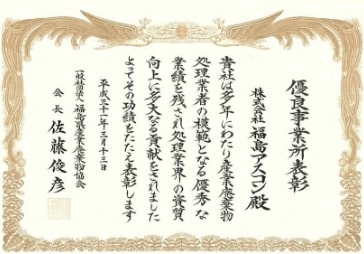 優良事業所表彰
株式会社 福島アスコン殿
貴社は多年にわたり産業廃棄物
処理業者の模範となる優秀な
業績を残され処理業界の資質
向上に多大なる貢献をされました
よってその功績をたたえ表彰します
平成三十一年三月十三日
一般社団法人 福島県産業廃棄物協会
会長 佐藤俊彦